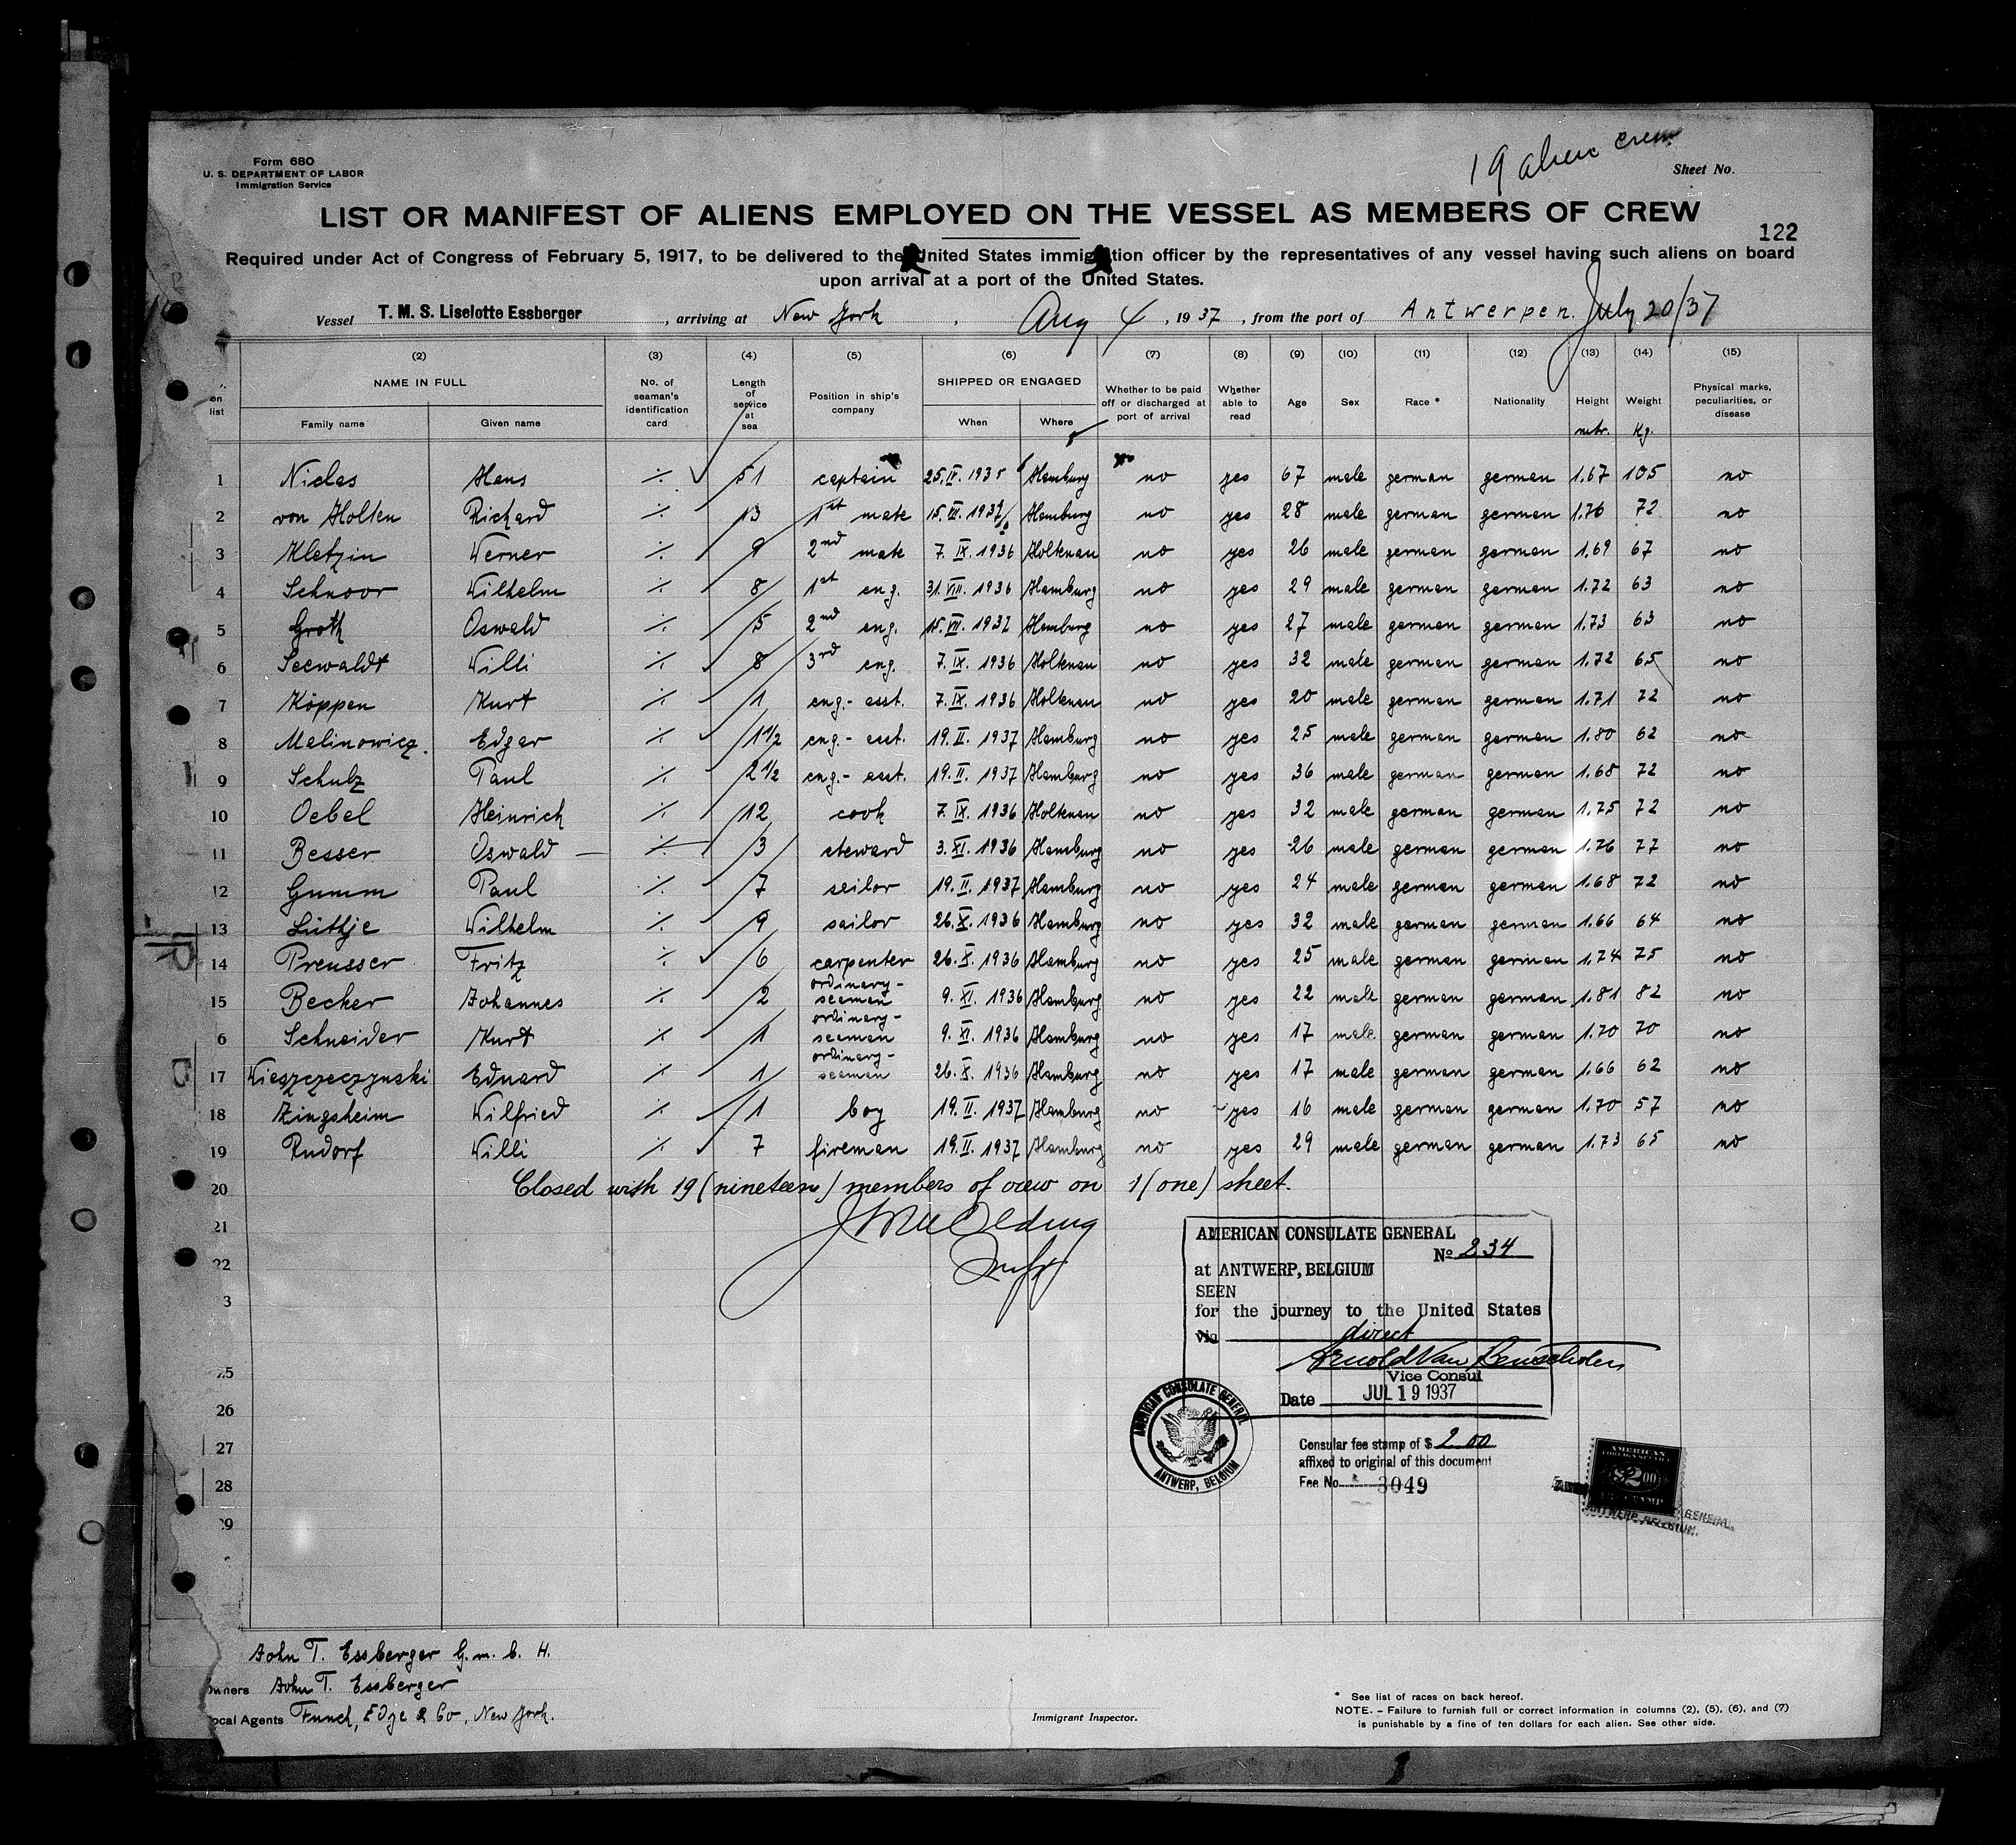 19 alien crew
Form 680
U. S. DEPARTMENT OF LABOR
Immigration Service
Sheet No.
LIST OR MANIFEST OF ALIENS EMPLOYED ON THE VESSEL AS MEMBERS OF CREW
122
Required under Act of Congress of February 5, 1917, to be delivered to the United States immigration officer by the representatives of any vessel having such aliens on board
upon arrival at a port of the United States.
Vessel T. M. S. Liselotte Essberger, arriving at New York, Aug 4, 1937, from the port of Antwerpen. July 20/37
(2) (3) (4) (5) (6) (7) (8) (9) (10) (11) (12) (13) (14) (15)
on list NAME IN FULL Family name Given name No. of seaman's identification card Length of service at sea Position in ship's company SHIPPED OR ENGAGED When Where Whether to be paid off or discharged at port of arrival Whether able to read Age Sex Race * Nationality Height Weight Physical marks, peculiarities, or disease
mtr. Kg.
1 Niclas Hans ⁒ 51 captain 25.IV.1935 Hamburg no yes 67 male german german 1.67 105 no
2 von Holten Richard ⁒ 13 1st mate 15.VII.1937 Hamburg no yes 28 male german german 1.76 72 no
3 Kletzin Werner ⁒ 9 2nd mate 7.IX.1936 Holtenau no yes 26 male german german 1.69 67 no
4 Schnoor Wilhelm ⁒ 8 1st eng. 31.VIII.1936 Hamburg no yes 29 male german german 1.72 63 no
5 Groth Oswald ⁒ 5 2nd eng. 15.VII.1937 Hamburg no yes 27 male german german 1.73 63 no
6 Seewaldt Willi ⁒ 8 3rd eng. 7.IX.1936 Holtenau no yes 32 male german german 1.72 65 no
7 Köppen Kurt ⁒ 1 eng.-asst. 7.IX.1936 Holtenau no yes 20 male german german 1.71 72 no
8 Malinowicz Edgar ⁒ 1 1/2 eng.-asst. 19.II.1937 Hamburg no yes 25 male german german 1.80 62 no
9 Schulz Paul ⁒ 2 1/2 eng.-asst. 19.II.1937 Hamburg no yes 36 male german german 1.68 72 no
10 Oebel Heinrich ⁒ 12 cook 7.IX.1936 Holtenau no yes 32 male german german 1.75 72 no
11 Besser Oswald ⁒ 3 steward 3.XI.1936 Hamburg no yes 26 male german german 1.76 77 no
12 Gumm Paul ⁒ 7 sailor 19.II.1937 Hamburg no yes 24 male german german 1.68 72 no
13 Lüthje Wilhelm ⁒ 9 sailor 26.X.1936 Hamburg no yes 32 male german german 1.66 64 no
14 Preusser Fritz ⁒ 6 carpenter 26.X.1936 Hamburg no yes 25 male german german 1.74 75 no
15 Becker Johannes ⁒ 2 ordinary-seaman 9.XI.1936 Hamburg no yes 22 male german german 1.81 82 no
6 Schneider Kurt ⁒ 1 ordinary-seaman 9.XI.1936 Hamburg no yes 17 male german german 1.70 70 no
17 Wieszczeczynski Eduard ⁒ 1 ordinary-seaman 26.X.1936 Hamburg no yes 17 male german german 1.66 62 no
18 Zingsheim Wilfried ⁒ 1 boy 19.II.1937 Hamburg no yes 16 male german german 1.70 57 no
19 Rudorf Willi ⁒ 7 fireman 19.II.1937 Hamburg no yes 29 male german german 1.73 65 no
20 Closed with 19 (nineteen) members of crew on 1 (one) sheet.
21
22
3
25
26
27
28
29
AMERICAN CONSULATE GENERAL
No 234
at ANTWERP, BELGIUM
SEEN
for the journey to the United States
via direct
Arnold Van Benschoten
Vice Consul
Date JUL 19 1937
AMERICAN CONSULATE GENERAL
ANTWERP, BELGIUM
Consular fee stamp of $ 2.00
affixed to original of this document
Fee No. 3049
AMERICAN
$2.00
GENERAL
ANTWERP, BELGIUM.
John T. Essberger G.m.b.H.
Owners John T. Essberger
Local Agents Funch, Edye & Co, New York.
Immigrant Inspector.
* See list of races on back hereof.
NOTE. - Failure to furnish full or correct information in columns (2), (5), (6), and (7)
is punishable by a fine of ten dollars for each alien. See other side.